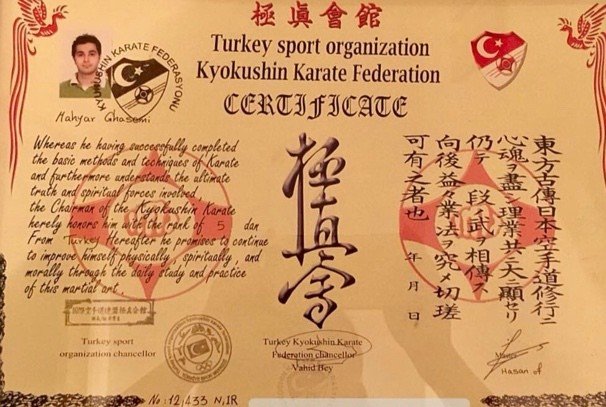 極眞會館
Turkey sport organization
Kyokushin Karate Federation
CERTIFICATE
KYOKUSHIN KARATE FEDERASYONU
Mahyar Ghasemi
Whereas he having successfully completed
the basic methods and techniques of Karate
and furthermore understands the ultimate
truth and spiritual forces involved,
the Chairman of the Kyokushin Karate
hereby honors him with the rank of 5 dan
From Turkey Hereafter he promises to continue
to improve himself physically, spiritually, and
morally through the daily study and practice
of this martial art.
極真会
東方古傳日本空手道修行ニ
心魂ヲ盡シ理業共ニ大ニ顯セリ
仍テ 段ノ武ヲ相傳ス
向後益々業法ヲ究メ切瑳
可有之者也 年 月 日
國際空手道連盟極真会館
Turkey sport
organization chancellor
Turkey Kyokushin Karate
Federation chancellor
Vahid Bey
Hasan
No: 12,433 N,IR